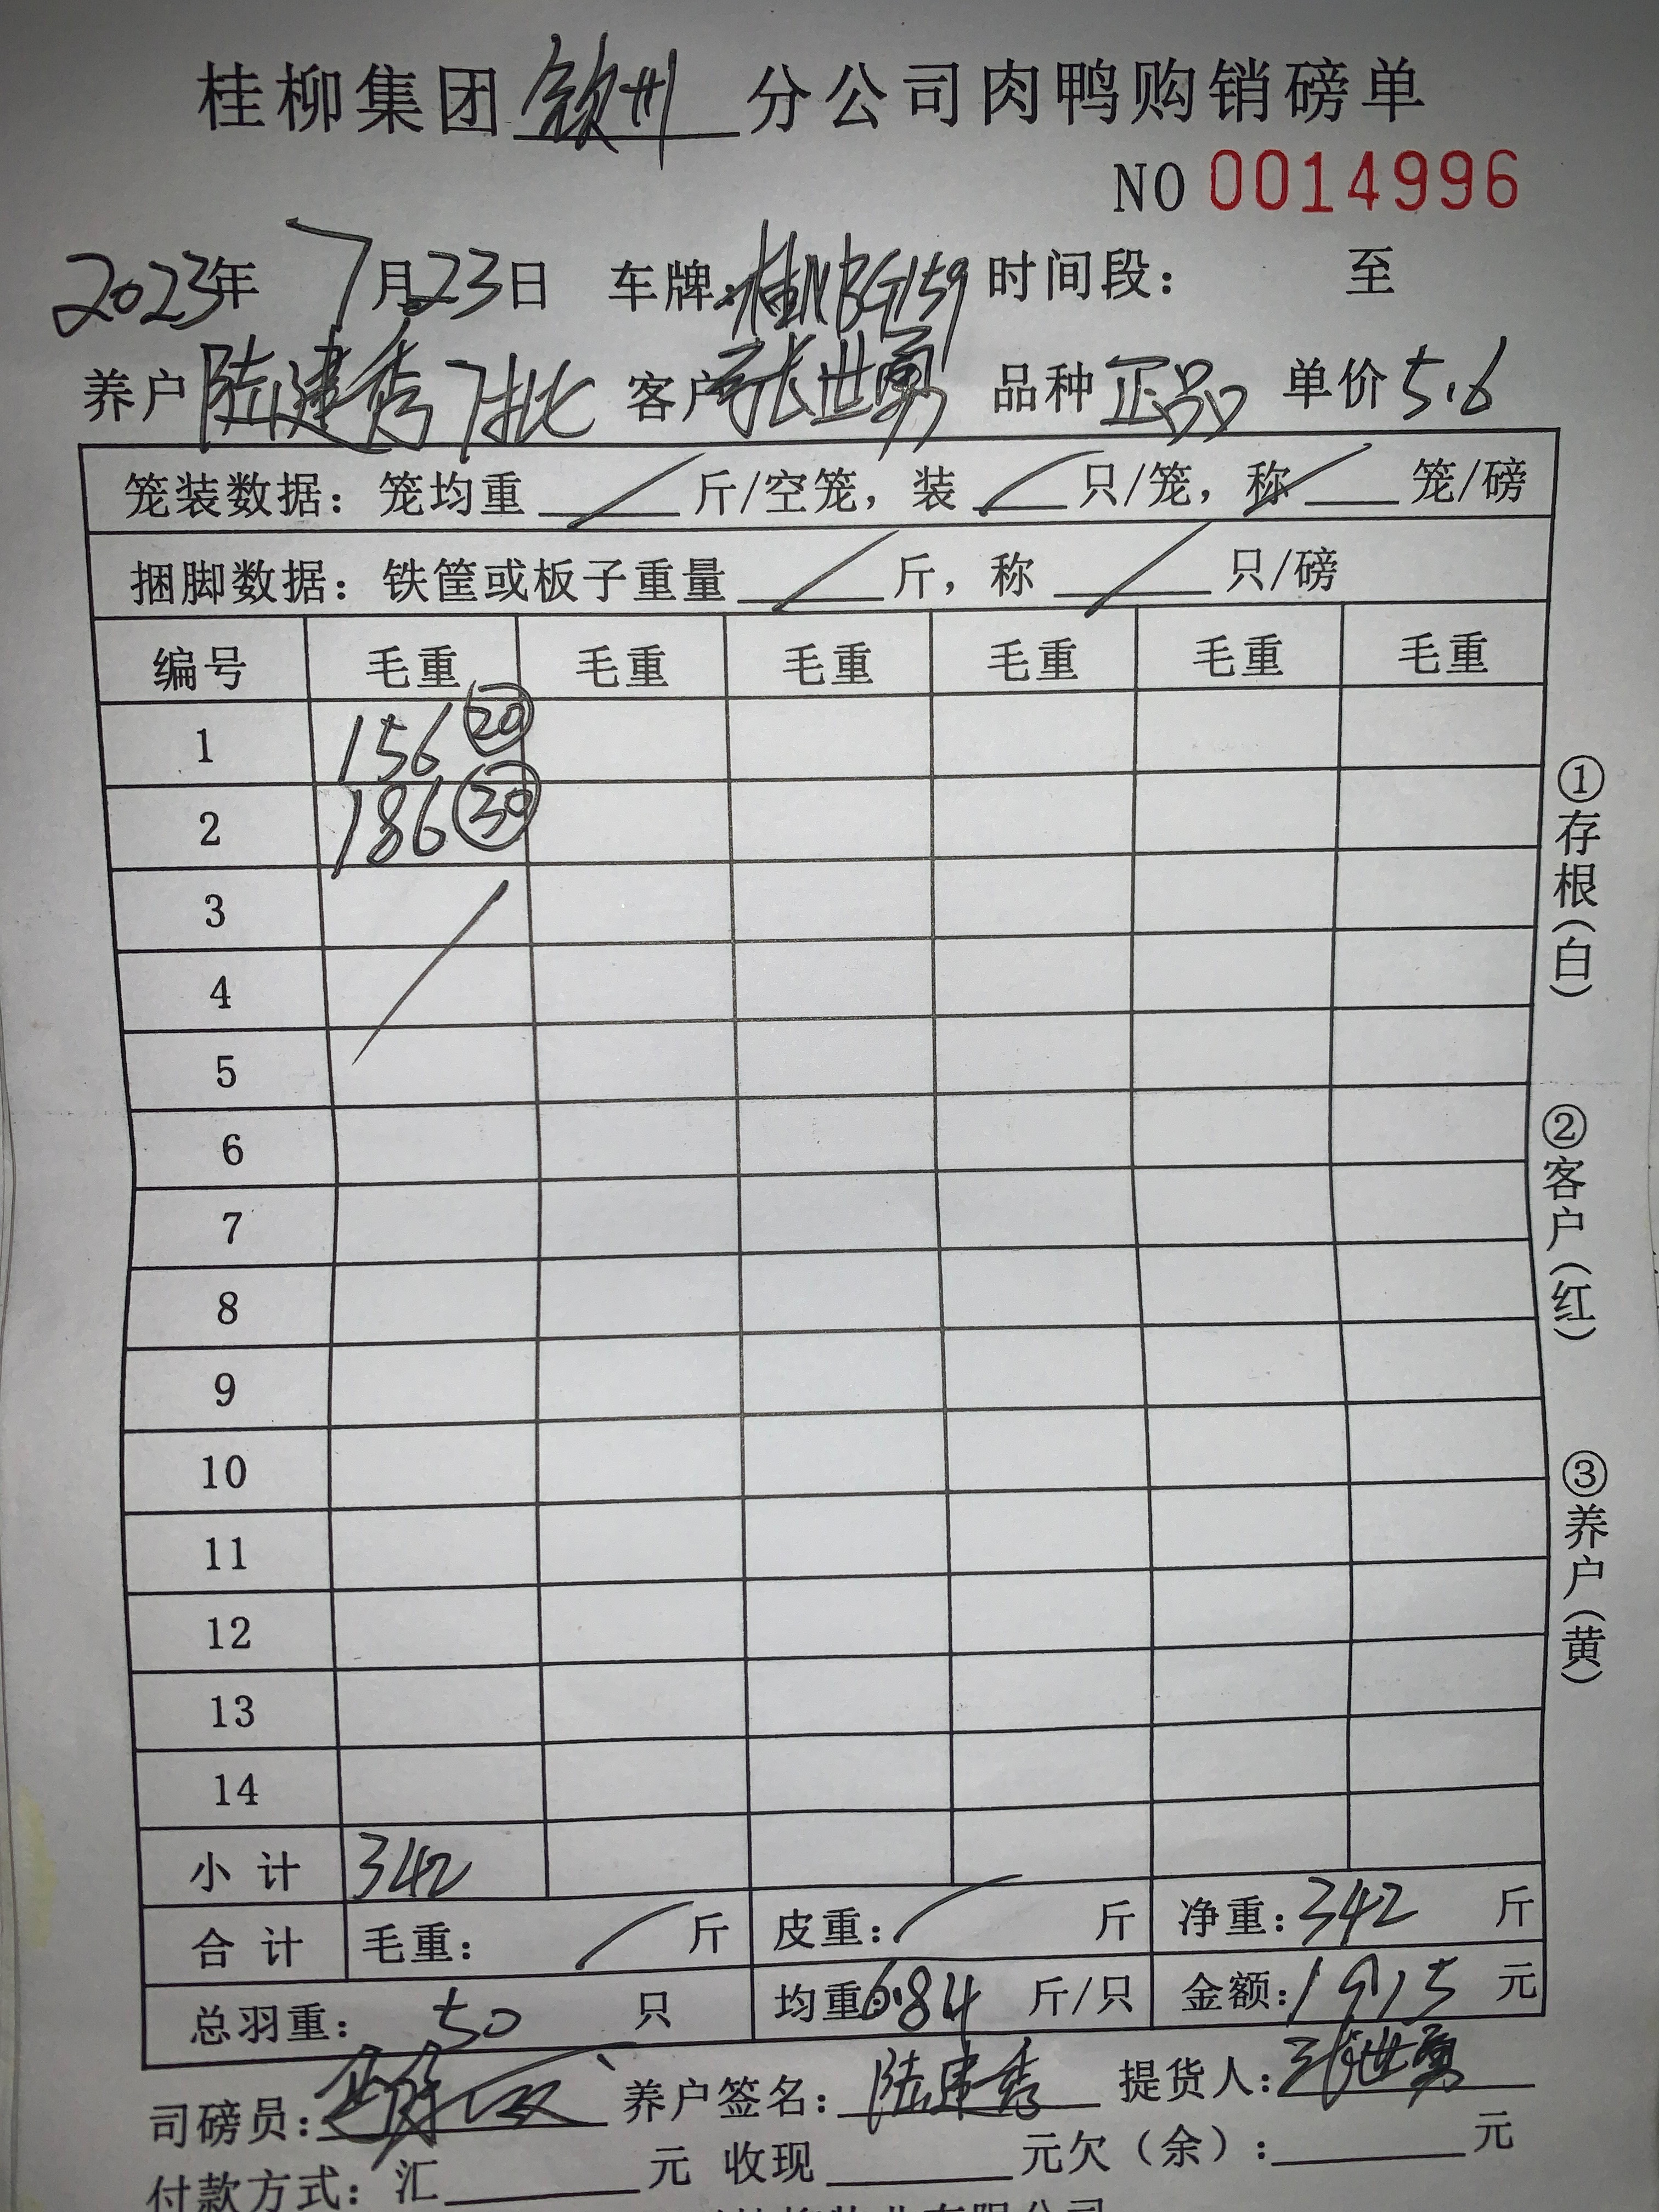 桂柳集团钦州分公司肉鸭购销磅单
NO 0014996
2023年7月23日 车牌:桂NBG159 时间段: 至
养户陆建秀7批 客户张世勇 品种正品 单价5.6
笼装数据:笼均重 / 斤/空笼,装 / 只/笼,称 / 笼/磅
捆脚数据:铁筐或板子重量 / 斤,称 / 只/磅
编号 毛重 毛重 毛重 毛重 毛重 毛重
1 156 ⑳
2 186 ㉚
3
4
5
6
7
8
9
10
11
12
13
14
小计 342
合计 毛重: / 斤 皮重: / 斤 净重:342 斤
总羽重: 50 只 均重:6.84 斤/只 金额:1915 元
司磅员: 养户签名:陆建秀 提货人:张世勇
付款方式:汇 元 收现 元欠(余): 元
①存根(白)
②客户(红)
③养户(黄)